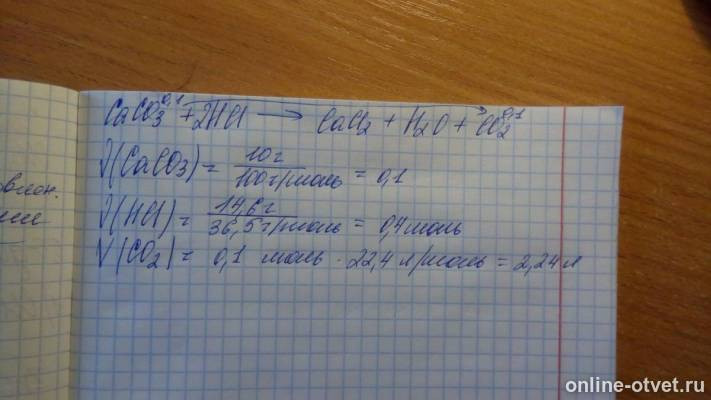 CaCO₃^0,1 + 2HCl → CaCl₂ + H₂O + CO₂^0,1
ν(CaCO₃) = 10 г / 100 г/моль = 0,1
ν(HCl) = 14,6 г / 36,5 г/моль = 0,4 моль
V(CO₂) = 0,1 моль · 22,4 л/моль = 2,24 л
online-otvet.ru